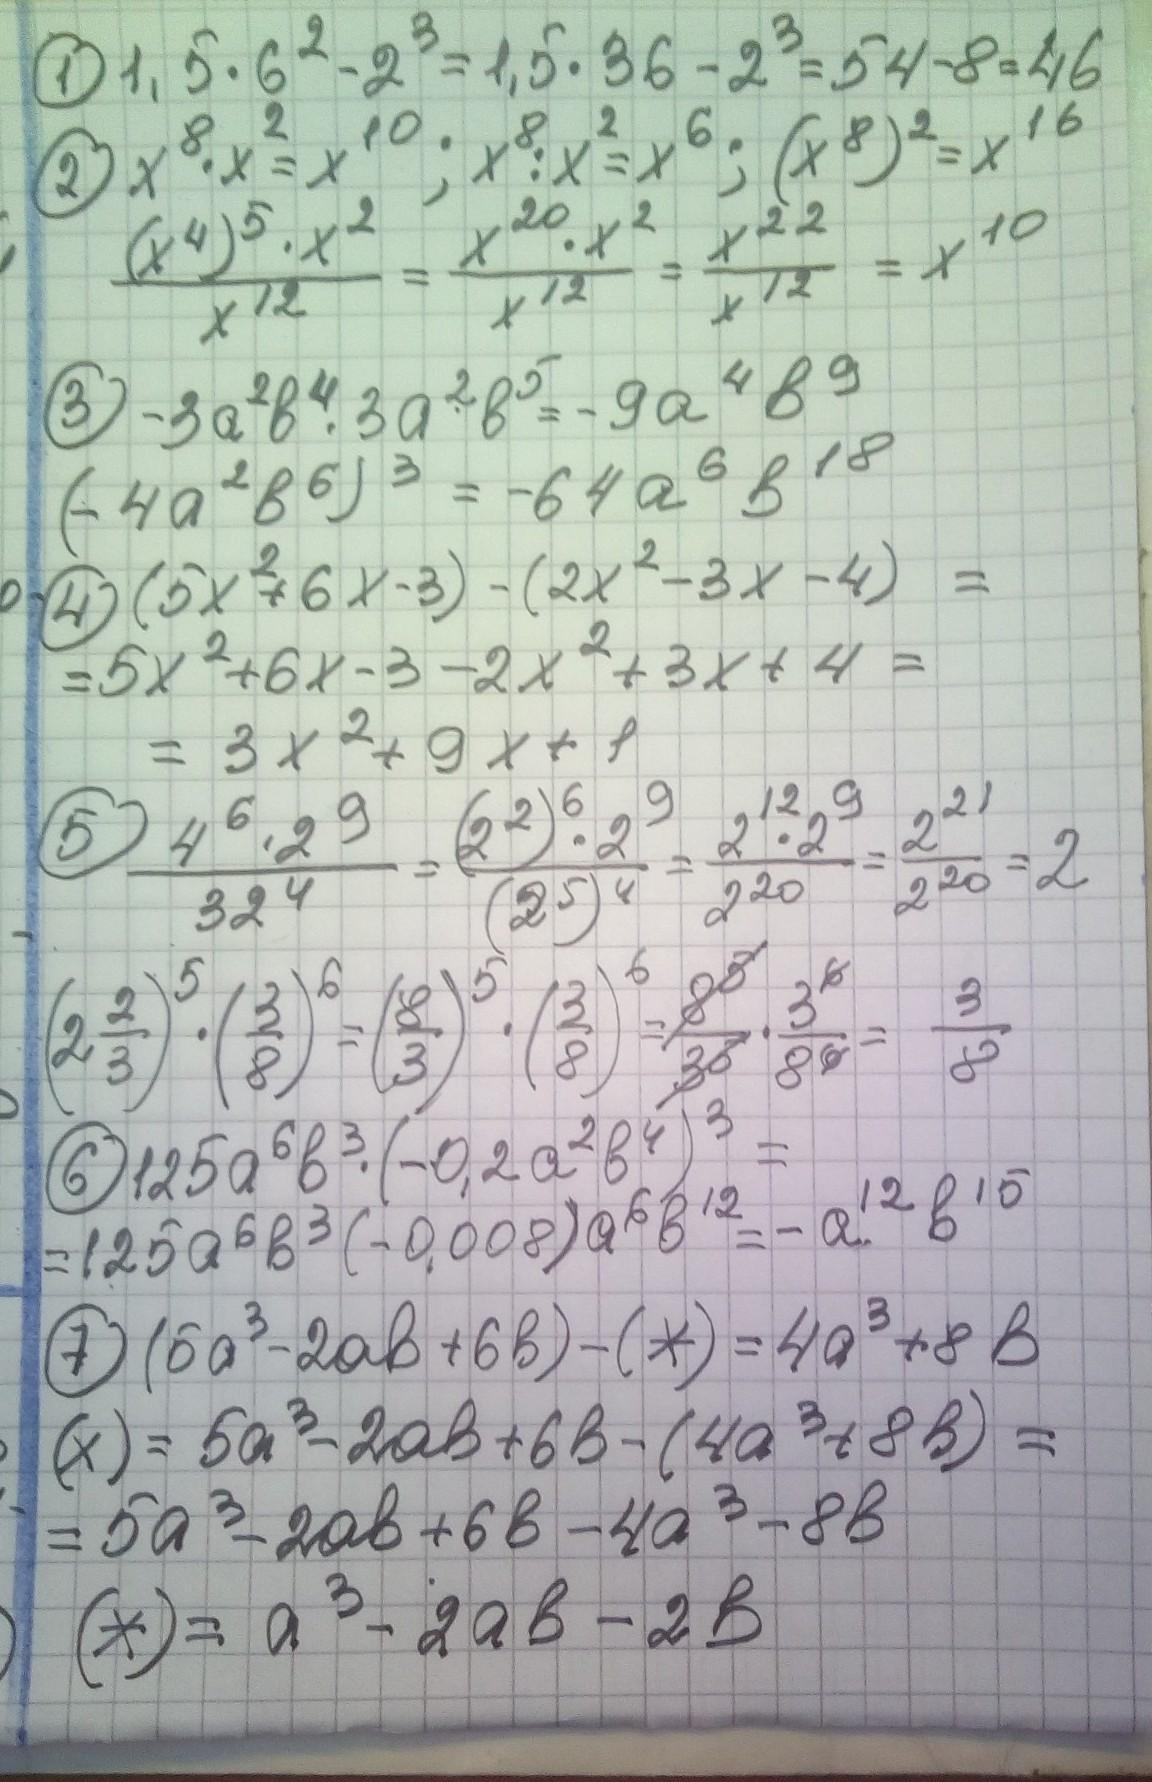 ① 1,5·6² - 2³ = 1,5·36 - 2³ = 54 - 8 = 46
② x⁸·x² = x¹⁰; x⁸:x² = x⁶; (x⁸)² = x¹⁶
(x⁴)⁵·x² / x¹² = x²⁰·x² / x¹² = x²² / x¹² = x¹⁰
③ -3a²b⁴·3a²·b⁵ = -9a⁴b⁹
(-4a²b⁶)³ = -64a⁶b¹⁸
④ (5x² + 6x - 3) - (2x² - 3x - 4) =
= 5x² + 6x - 3 - 2x² + 3x + 4 =
= 3x² + 9x + 1
⑤ 4⁶·2⁹ / 32⁴ = (2²)⁶·2⁹ / (2⁵)⁴ = 2¹²·2⁹ / 2²⁰ = 2²¹ / 2²⁰ = 2
(2 2/3)⁵·(3/8)⁶ = (8/3)⁵·(3/8)⁶ = 8⁵/3⁵·3⁶/8⁶ = 3/8
⑥ 125a⁶b³·(-0,2a²b⁴)³ =
= 125a⁶b³(-0,008)a⁶b¹² = -a¹²b¹⁵
⑦ (5a³ - 2ab + 6b) - (*) = 4a³ + 8b
(x) = 5a³ - 2ab + 6b - (4a³ + 8b) =
= 5a³ - 2ab + 6b - 4a³ - 8b
(*) = a³ - 2ab - 2b